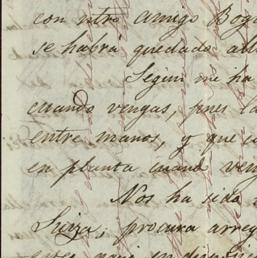 con ntro amigo Bog
se habrá quedado all
Segun me ha
cuando vengas, pues la
entre manos, y que c
en planta cuand ven
Nos ha sido
Suiza; procura arreg